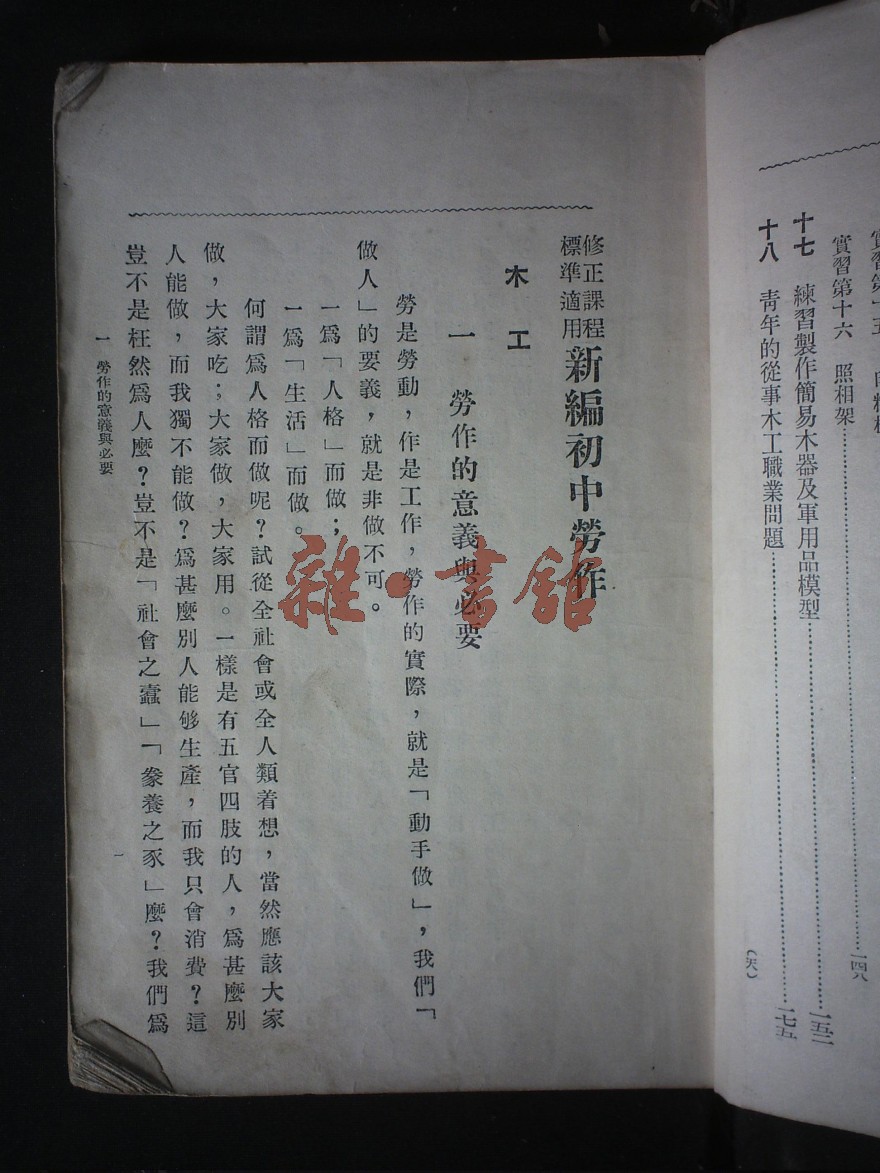 實習第十六 照相架……一四八
十七 練習製作簡易木器及軍用品模型……一五二
十八 青年的從事木工職業問題……一七五
修正課程
標準適用
新編初中勞作
木工
一 勞作的意義與必要
勞是勞動，作是工作，勞作的實際，就是「動手做」，我們「
做人」的要義，就是非做不可。
一爲「人格」而做；
一爲「生活」而做。
何謂爲人格而做呢？試從全社會或全人類着想，當然應該大家
做，大家吃；大家做，大家用。一樣是有五官四肢的人，爲甚麼別
人能做，而我獨不能做？爲甚麼別人能够生產，而我只會消費？這
豈不是枉然爲人麼？豈不是「社會之蠹」「豢養之豕」麼？我們爲
一 勞作的意義與必要
一
雜·書館